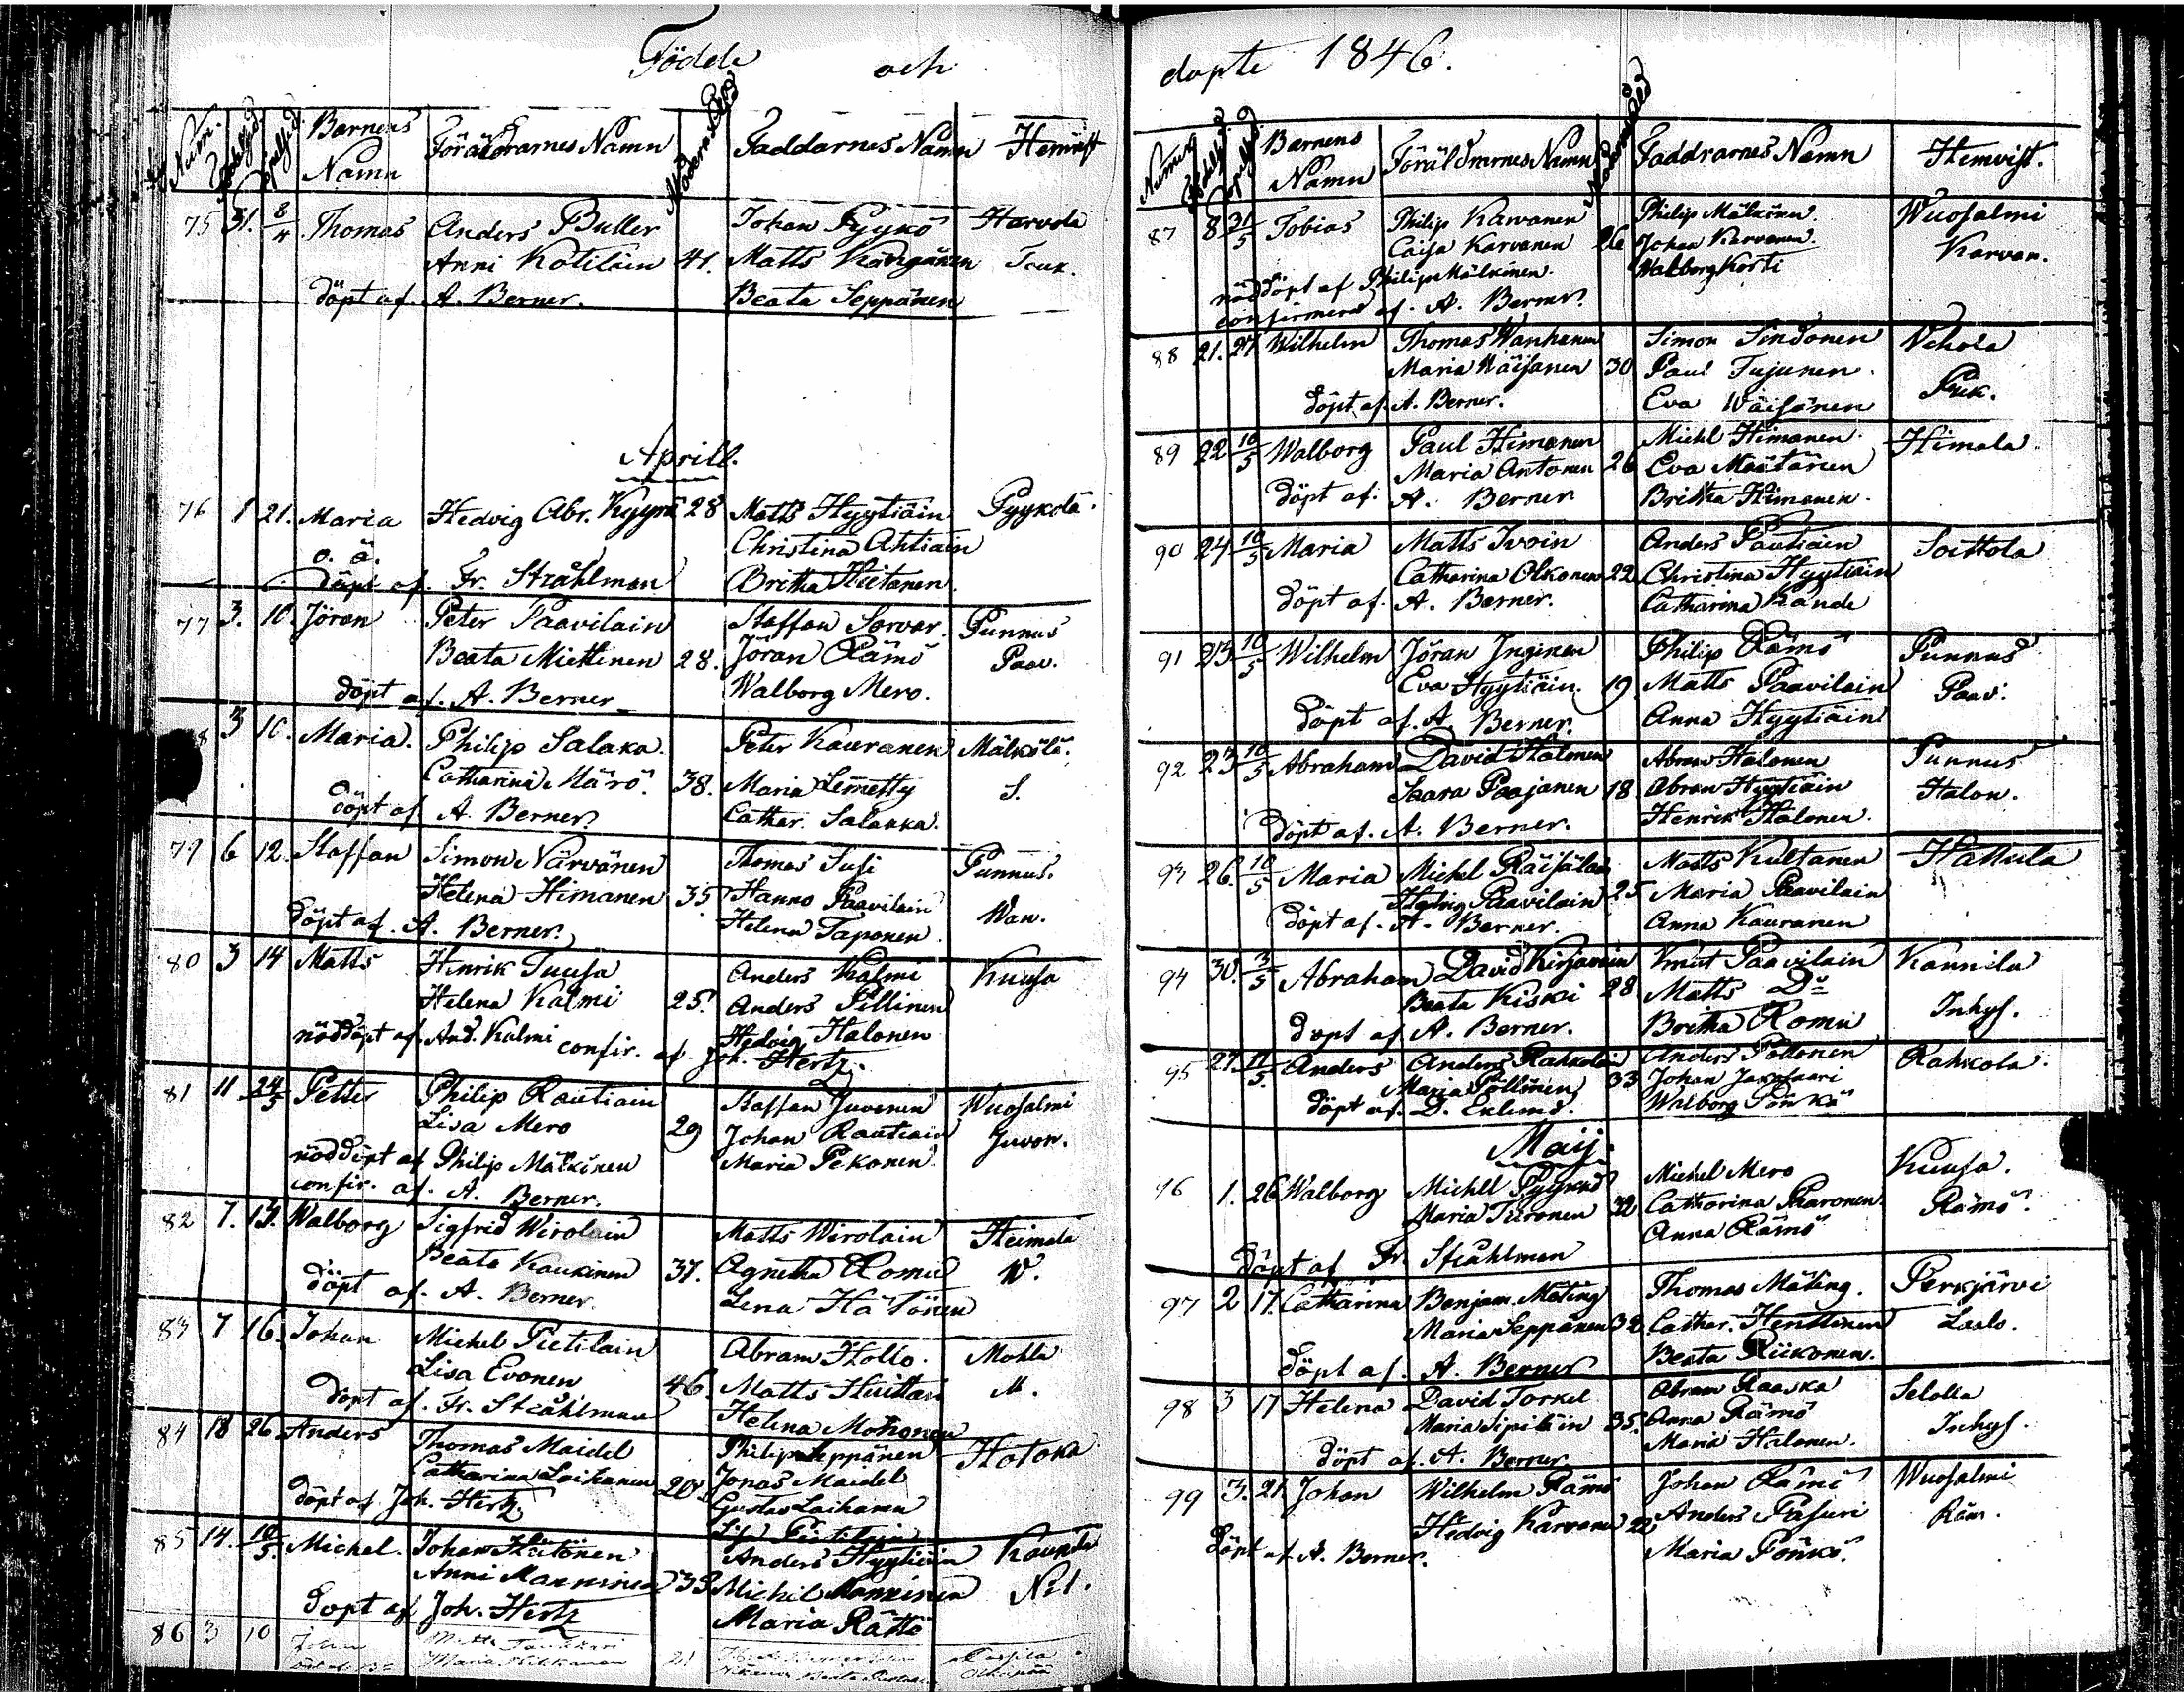 Födde och
Num. Födelsed. Döpelsed. Barnens Namn Föräldrarnes Namn Moderns Ålder Faddarnes Namn Hemvist
75 31. 8/4 Thomas Anders Buller Johan Pyykö Harvola
Anni Kotilain 41. Matts Kängänen Teuk.
döpt af. A. Berner. Beata Seppänen
Aprill.
76 1 21. Maria Hedvig Abr. Kyyrä 28 Matts Hyytiäin Pyykölä.
o. ä. Christina Ahtiain
döpt af. Fr. Stråhlman Britha Hietanen
77 3. 10. Jöran Peter Paavilain Staffan Sorvar. Punnus
Beata Miettinen 28. Jöran Rämö Paav.
döpt af. A. Berner Walborg Mero.
8 3 10. Maria. Philip Salaka. Peter Kauranen Mälkölä.
Catharina Märö. 38. Maria Lemetty S.
döpt af A. Berner. Cathar. Salakka.
79 6 12. Staffan Simon Närvänen Thomas Susi Punnus.
Helena Himanen 35 Hanno Paavilain Wan.
döpt af. A. Berner. Helena Taponen
80 3 14 Matts Henrik Tuusa Anders Kalmi Kuusa
Helena Kalmi 25. Anders Pellinen
nöddöpt af. And. Kalmi confir. af. Joh. Hertz. Hedvig Halonen
81 11 24/5 Petter Philip Rautiain Staffan Juvonen Wuosalmi
Lisa Mero 29 Johan Rautiain Juvon.
nöddöpt af Philip Mälkinen Maria Pekonen
confir. af. A. Berner.
82 7. 13. Walborg Sigfrid Wirolain Matts Wirolain Heimala
Beata Kaukinen 37. Agnetha Romu W.
döpt af. A. Berner. Lena Hätönen
83 7 16. Johan Michel Pietilain Abram Hollo. Mohla
Lisa Evonen 46. Matts Huittari M.
döpt af. Fr. Stråhlman Helena Mohonen
84 18 26 Anders Thomas Maidel Philip Seppänen Hotoka
Catharina Laihanen 20 Jonas Maidel
döpt af Joh. Hertz. Gustav Laihanen
85 14. 10/5. Michel. Johan Hätönen Anders Hyytiäin Kaunila
Anni Manninen 33 Michel Manninen Nil.
döpt af Joh. Hertz Maria Rättö
86 3 10 Johan Matts
Maria 21 Beata
dopte 1846.
Num. Födelsed. Döpelsed. Barnens Namn Föräldrarnes Namn Moderns Ålder Faddrarnes Namn Hemvist.
87 8 31/5 Tobias Philip Karvanen Philip Mälkinen Wuosalmi
Caisa Karvanen 26 Johan Karvanen. Karvan.
nöddöpt af Philip Mälkinen. Walborg Korti
confirmerad af. A. Berner.
88 21. 27 Wilhelm Thomas Wanhanen Simon Sindonen Wehola
Maria Wäisänen 30 Paul Tujunen. Puk.
döpt af. A. Berner. Eva Wäisänen
89 22 10/5 Walborg Paul Himanen Michl Himanen Himala
Maria Antonen 26 Eva Määtänen
döpt af. A. Berner Britha Himanen.
90 24 10/5 Maria Matts Ivoin Anders Pautiain Soittola
Catharina Olkonen 22 Christina Hyytiäin
döpt af. A. Berner. Catharina Kände
91 23 10/5 Wilhelm Jöran Inginen Philip Rämö Punnus
Eva Hyytiäin. 19 Matts Paavilain Paav.
döpt af. A. Berner. Anna Hyytiäin
92 23 10/5 Abraham David Halonen Abram Halonen Punnus
Saara Paajanen 18 Abram Hyytiäin Halon.
döpt af. A. Berner. Henrik Halonen.
93 26. 10/5 Maria Michel Räisälän Matts Kultanen Hattula
Hedvig Paavilain 25 Maria Paavilain
döpt af. A. Berner. Anna Kauranen
94 30. 3/5 Abraham David Kirjavain Knut Paavilain Kannila
Beata Kiski 28 Matts Do Inhys.
döpt af A. Berner. Britha Romu
95 27. 11/5. Anders Anders Rahkolain Anders Pollonen Rahkola.
Maria Pöllönen 33 Johan
döpt af. D. Eklund. Walborg Pönkä
Maij.
96 1. 26 Walborg Michel Pyykkö Michel Mero Kuusa.
Maria Turonen 32 Catharina Paaronen. Rämö.
Anna Rämö
döpt af Fr. Stråhlman
97 2 17. Catharina Benjam. Mäting Thomas Mäting. Perkjärvi
Maria Seppänen 32 Cathar. Henttinen Laslo.
döpt af. A. Berner Beata Riikonen.
98 3 17 Helena David Torkel Abram Raaska Selolla
Maria Sipiläin 35. Anna Rämö Inhys.
döpt af. A. Berner Maria Halonen.
99 3. 21. Johan Wilhelm Rämö Johan Rämö Wuosalmi
Hedvig Karvanen 22 Anders Pasuri Räm.
döpt af A. Berner. Maria Pönkö.